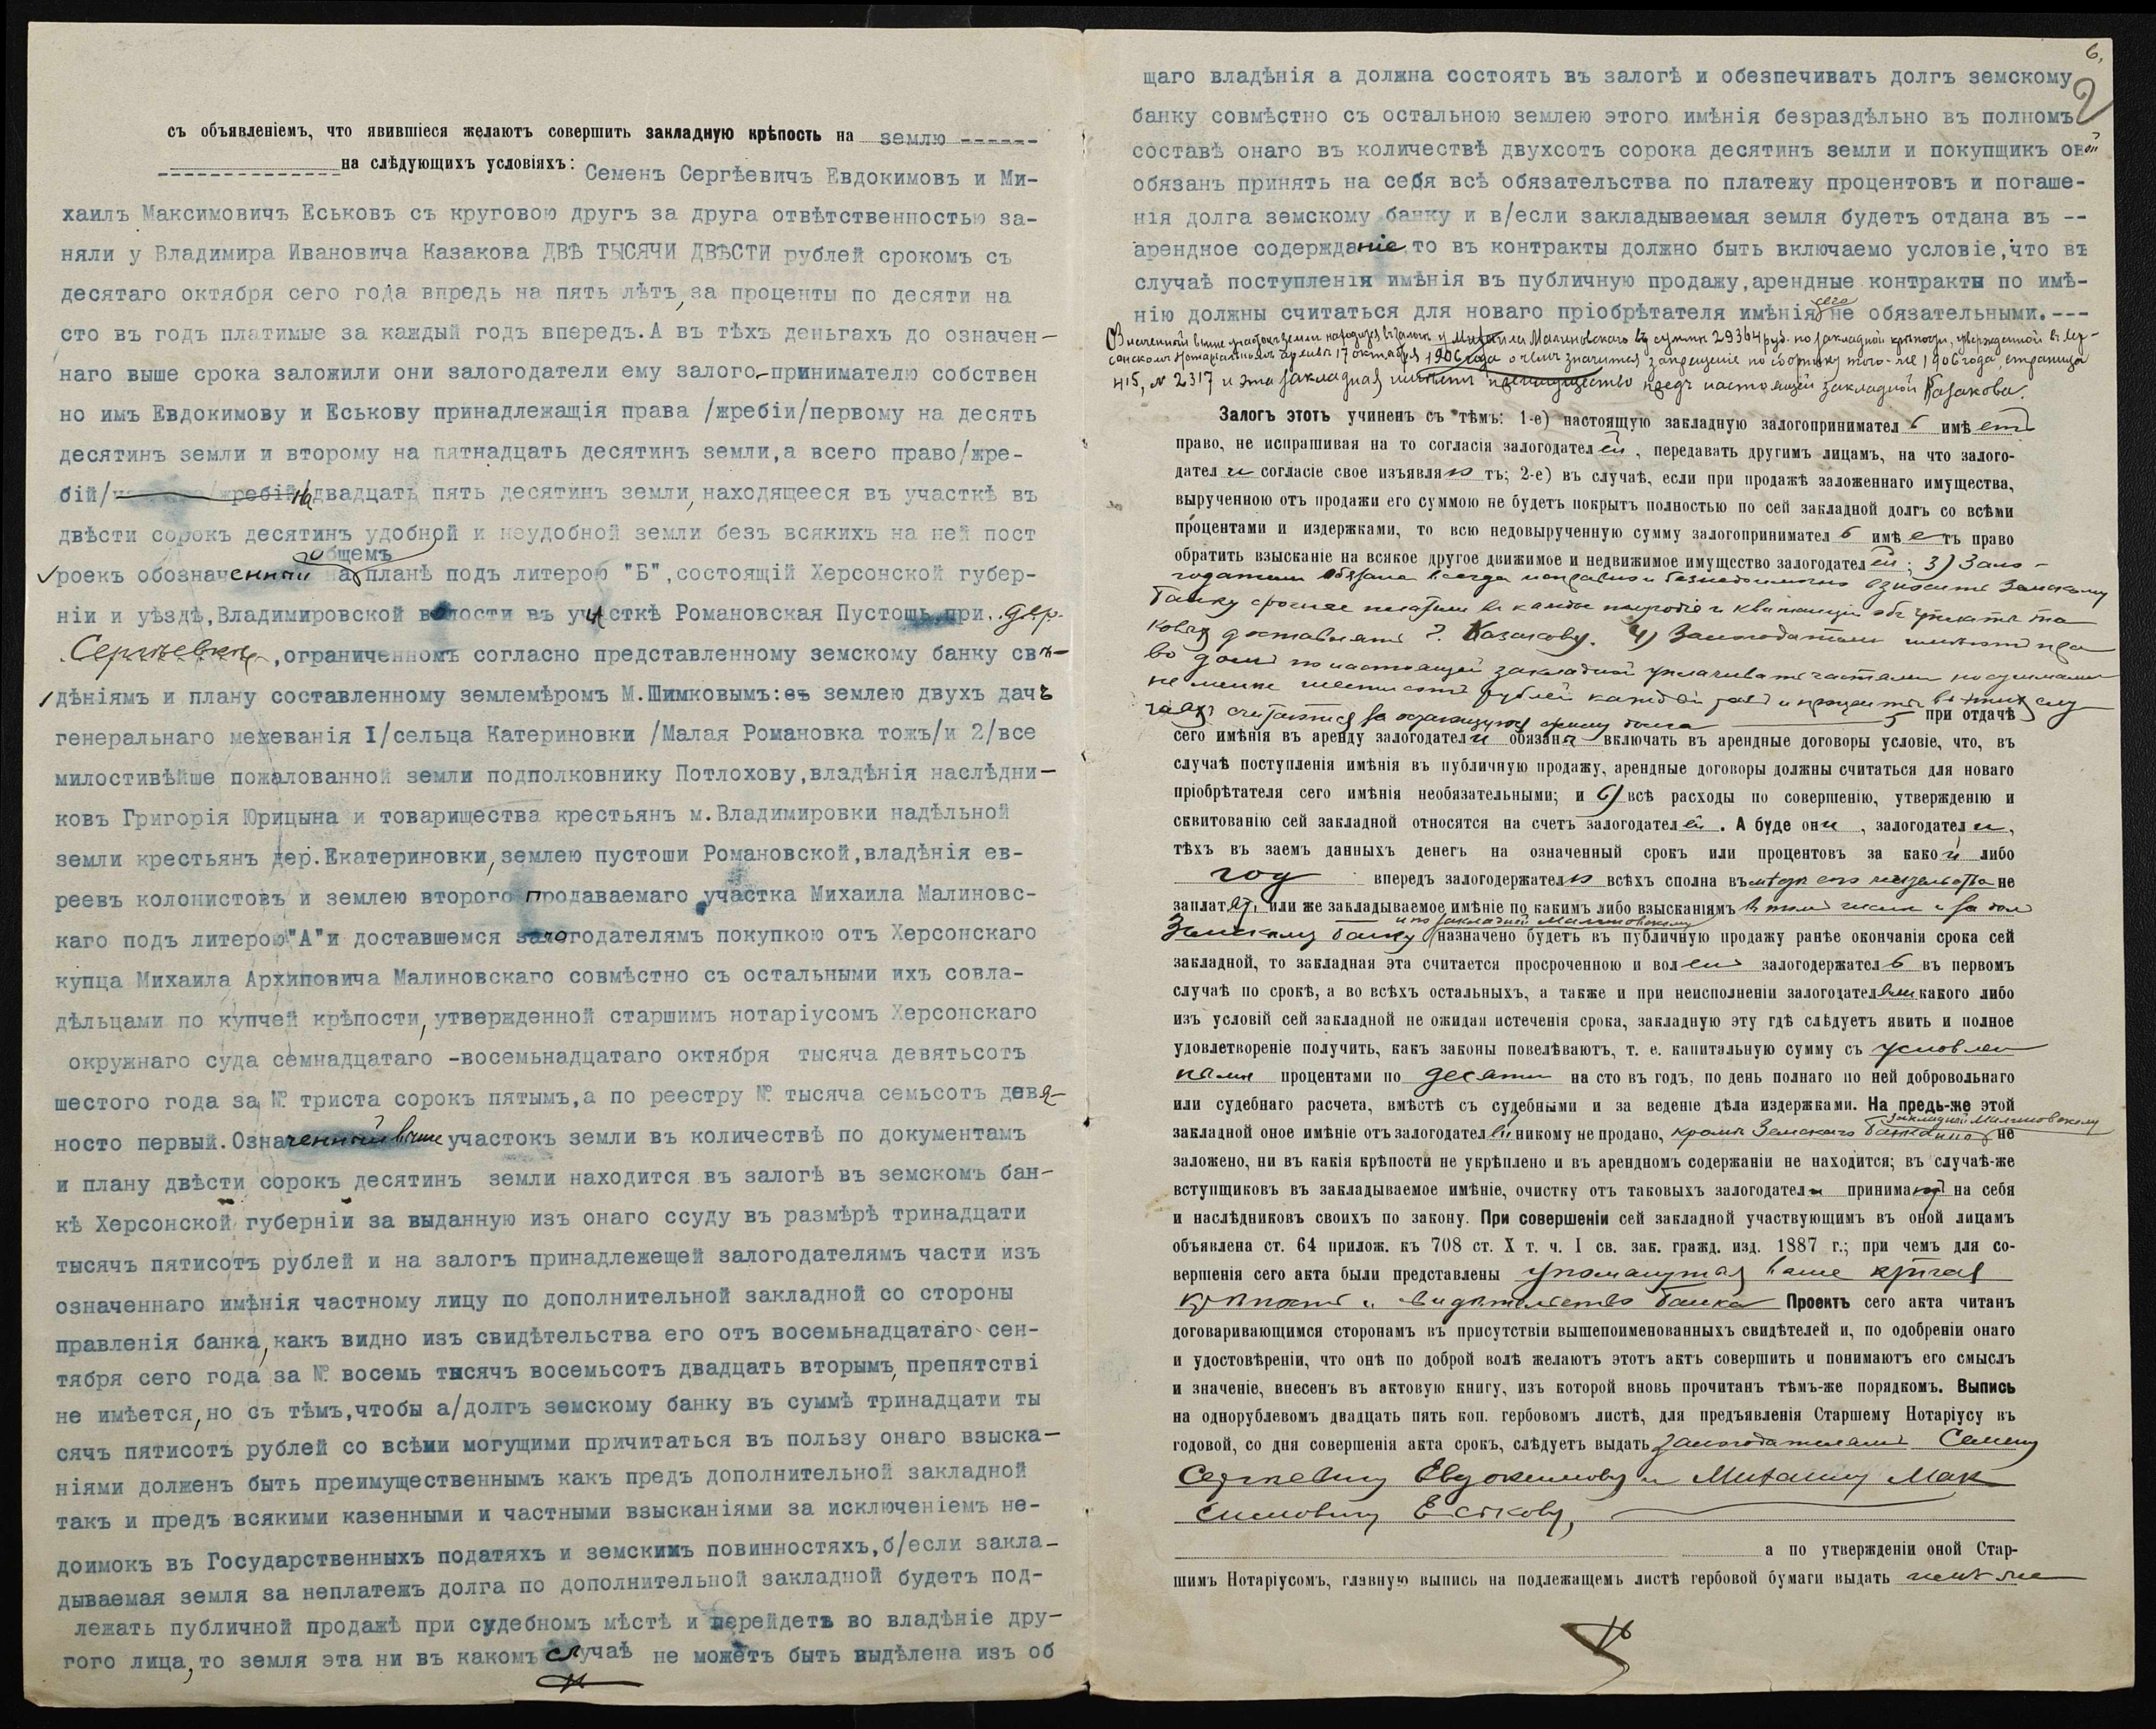 съ объявленіемъ, что явившіеся желаютъ совершить закладную крѣпость на землю ------
на слѣдующихъ условіяхъ: Семенъ Сергѣевичъ Евдокимовъ и Ми-
хаилъ Максимовичъ Еськовъ съ круговою другъ за друга отвѣтственностью за-
няли у Владимира Ивановича Казакова ДВѢ ТЫСЯЧИ ДВѢСТИ рублей срокомъ съ
десятаго октября сего года впредь на пять лѣтъ, за проценты по десяти на
сто въ годъ платимые за каждый годъ впередъ. А въ тѣхъ деньгахъ до означен-
наго выше срока заложили они залогодатели ему залого-принимателю собствен
но имъ Евдокимову и Еськову принадлежащія права /жребіи/первому на десять
десятинъ земли и второму на пятнадцать десятинъ земли, а всего право/жре-
бій/ на двадцать пять десятинъ земли, находящееся въ участкѣ въ
двѣсти сорокъ десятинъ удобной и неудобной земли безъ всякихъ на ней пост
общемъ
роекъ обозначенный на планѣ подъ литерою "Б", состоящій Херсонской губер-
ніи и уѣздѣ, Владимировской волости въ участкѣ Романовская Пустошь при дер.
Сергѣевкѣ, ограниченномъ согласно представленному земскому банку свѣ-
дѣніямъ и плану составленному землемѣромъ М.Шимковымъ: съ землею двухъ дачъ
генеральнаго межеванія I/сельца Катериновки /Малая Романовка тожъ/и 2/все
милостивѣйше пожалованной земли подполковнику Потлохову, владѣнія наслѣдни-
ковъ Григорія Юрицына и товарищества крестьянъ м.Владимировки надѣльной
земли крестьянъ дер.Екатериновки, землею пустоши Романовской, владѣнія ев-
реевъ колонистовъ и землею второго продаваемаго участка Михаила Малиновс-
каго подъ литерою "А" и доставшемся залогодателямъ покупкою отъ Херсонскаго
купца Михаила Архиповича Малиновскаго совмѣстно съ остальными ихъ совла-
дѣльцами по купчей крѣпости, утвержденной старшимъ нотаріусомъ Херсонскаго
окружнаго суда семнадцатаго -восемьнадцатаго октября тысяча девятьсотъ
шестого года за № триста сорокъ пятымъ, а по реестру № тысяча семьсотъ девя-
носто первый. Означенный выше участокъ земли въ количествѣ по документамъ
и плану двѣсти сорокъ десятинъ земли находится въ залогѣ въ земскомъ бан-
кѣ Херсонской губерніи за выданную изъ онаго ссуду въ размѣрѣ тринадцати
тысячъ пятисотъ рублей и на залогъ принадлежещей залогодателямъ части изъ
означеннаго имѣнія частному лицу по дополнительной закладной со стороны
правленія банка, какъ видно изъ свидѣтельства его отъ восемьнадцатаго сен-
тября сего года за № восемь тысячъ восемьсотъ двадцать вторымъ, препятстві
не имѣется, но съ тѣмъ, чтобы а/долгъ земскому банку въ суммѣ тринадцати ты
сячъ пятисотъ рублей со всѣми могущими причитаться въ пользу онаго взыска-
ніями долженъ быть преимущественнымъ какъ предъ дополнительной закладной
такъ и предъ всякими казенными и частными взысканіями за исключеніемъ не-
доимокъ въ Государственныхъ податяхъ и земскимъ повинностяхъ, б/если закла-
дываемая земля за неплатежъ долга по дополнительной закладной будетъ под-
лежать публичной продажѣ при судебномъ мѣстѣ и перейдетъ во владѣніе дру-
гого лица, то земля эта ни въ какомъ случаѣ не можетъ быть выдѣлена изъ об
6.
2
щаго владѣнія а должна состоять въ залогѣ и обезпечивать долгъ земскому
банку совмѣстно съ остальною землею этого имѣнія безраздѣльно въ полномъ
составѣ онаго въ количествѣ двухсотъ сорока десятинъ земли и покупщикъ оной
обязанъ принять на себя всѣ обязательства по платежу процентовъ и погаше-
нія долга земскому банку и в/если закладываемая земля будетъ отдана въ --
арендное содержаніе, то въ контракты должно быть включаемо условіе, что въ
случаѣ поступленія имѣнія въ публичную продажу, арендные контракты по имѣ-
нію должны считаться для новаго пріобрѣтателя имѣнія сего не обязательными.---
Означенный выше участокъ земли находится въ залогѣ у Михаила Малиновскаго въ суммѣ 29364 руб. по закладной крѣпости, утвержденной въ Хер-
сонскомъ Нотаріальномъ архивѣ 17 октября 1906 года о чемъ значится запрещеніе по сборнику того-же 1906 года, страница
415, № 2317 и эта закладная имѣетъ преимущество предъ настоящей закладной Казакова.
Залогъ этотъ учиненъ съ тѣмъ: 1-е) настоящую закладную залогоприниматель имѣетъ
право, не испрашивая на то согласія залогодателей, передавать другимъ лицамъ, на что залого-
датели согласіе свое изъявляютъ; 2-е) въ случаѣ, если при продажѣ заложеннаго имущества,
вырученною отъ продажи его суммою не будетъ покрытъ полностью по сей закладной долгъ со всѣми
процентами и издержками, то всю недовырученную сумму залогоприниматель имѣетъ право
обратить взысканіе на всякое другое движимое и недвижимое имущество залогодателей; 3) Зало-
годатели обязаны всегда исправно и безнедоимочно вносить Земскому
банку срочные платежи въ каждое полугодіе и квитанціи объ уплатѣ та
ковыхъ доставлять г. Казакову. 4) Залогодатели имѣютъ пра
во долгъ по настоящей закладной уплачивать частями но суммами
не менѣе шестисотъ рублей каждый разъ и проценты въ этихъ слу
чаяхъ считаются за остающуюся сумму долга 5 при отдачѣ
сего имѣнія въ аренду залогодатели обязаны включать въ арендные договоры условіе, что, въ
случаѣ поступленія имѣнія въ публичную продажу, арендные договоры должны считаться для новаго
пріобрѣтателя сего имѣнія необязательными; и 6) всѣ расходы по совершенію, утвержденію и
сквитованію сей закладной относятся на счетъ залогодателей. А буде они, залогодатели,
тѣхъ въ заемъ данныхъ денегъ на означенный срокъ или процентовъ за какой либо
годъ впередъ залогодержателю всѣхъ сполна въ мѣстѣ его жительства не
заплатятъ, или же закладываемое имѣніе по какимъ либо взысканіямъ въ томъ числѣ и за долг
и по закладной Малиновскому
Земскому банку назначено будетъ въ публичную продажу ранѣе окончанія срока сей
закладной, то закладная эта считается просроченною и воленъ залогодержатель въ первомъ
случаѣ по срокѣ, а во всѣхъ остальныхъ, а также и при неисполненіи залогодателями какого либо
изъ условій сей закладной не ожидая истеченія срока, закладную эту гдѣ слѣдуетъ явить и полное
удовлетвореніе получить, какъ законы повелѣваютъ, т. е. капитальную сумму съ условлен
ными процентами по десяти на сто въ годъ, по день полнаго по ней добровольнаго
или судебнаго расчета, вмѣстѣ съ судебными и за веденіе дѣла издержками. На предь-же этой
закладной Малиновскому
закладной оное имѣніе отъ залогодателей никому не продано, кромѣ Земскаго банка не
заложено, ни въ какія крѣпости не укрѣплено и въ арендномъ содержаніи не находится; въ случаѣ-же
вступщиковъ въ закладываемое имѣніе, очистку отъ таковыхъ залогодатели принимаютъ на себя
и наслѣдниковъ своихъ по закону. При совершеніи сей закладной участвующимъ въ оной лицамъ
объявлена ст. 64 прилож. къ 708 ст. X т. ч. I св. зак. гражд. изд. 1887 г.; при чемъ для со-
вершенія сего акта были представлены упомянутая выше купчая
крѣпость и свидѣтельство банка Проектъ сего акта читанъ
договаривающимся сторонамъ въ присутствіи вышепоименованныхъ свидѣтелей и, по одобреніи онаго
и удостовѣреніи, что онѣ по доброй волѣ желаютъ этотъ актъ совершить и понимаютъ его смыслъ
и значеніе, внесенъ въ актовую книгу, изъ которой вновь прочитанъ тѣмъ-же порядкомъ. Выпись
на однорублевомъ двадцать пять коп. гербовомъ листѣ, для предъявленія Старшему Нотаріусу въ
годовой, со дня совершенія акта срокъ, слѣдуетъ выдать залогодателямъ Семену
Сергѣевичу Евдокимову и Михаилу Мак
симовичу Еськову,
а по утвержденіи оной Стар-
шимъ Нотаріусомъ, главную выпись на подлежащемъ листѣ гербовой бумаги выдать имъ же